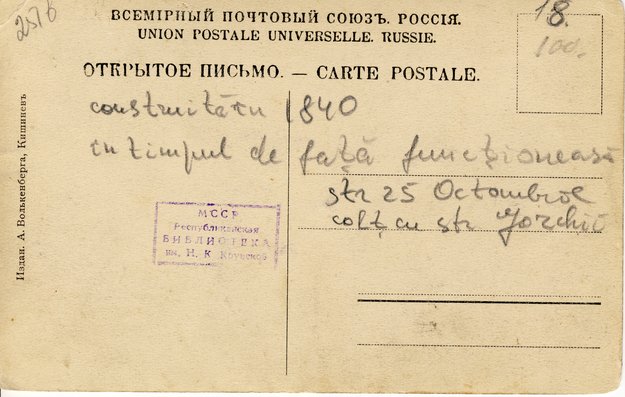 2576
18.
100.
ВСЕМІРНЫЙ ПОЧТОВЫЙ СОЮЗЪ. РОССІЯ.
UNION POSTALE UNIVERSELLE. RUSSIE.
ОТКРЫТОЕ ПИСЬМО. — CARTE POSTALE.
construită în 1840
în timpul de față funcționează
str 25 Octombrie
colț cu str
МССР
Республиканская
БИБЛИОТЕКА
им. Н. К. Крупской
Издан. А. Волькенберга, Кишиневъ